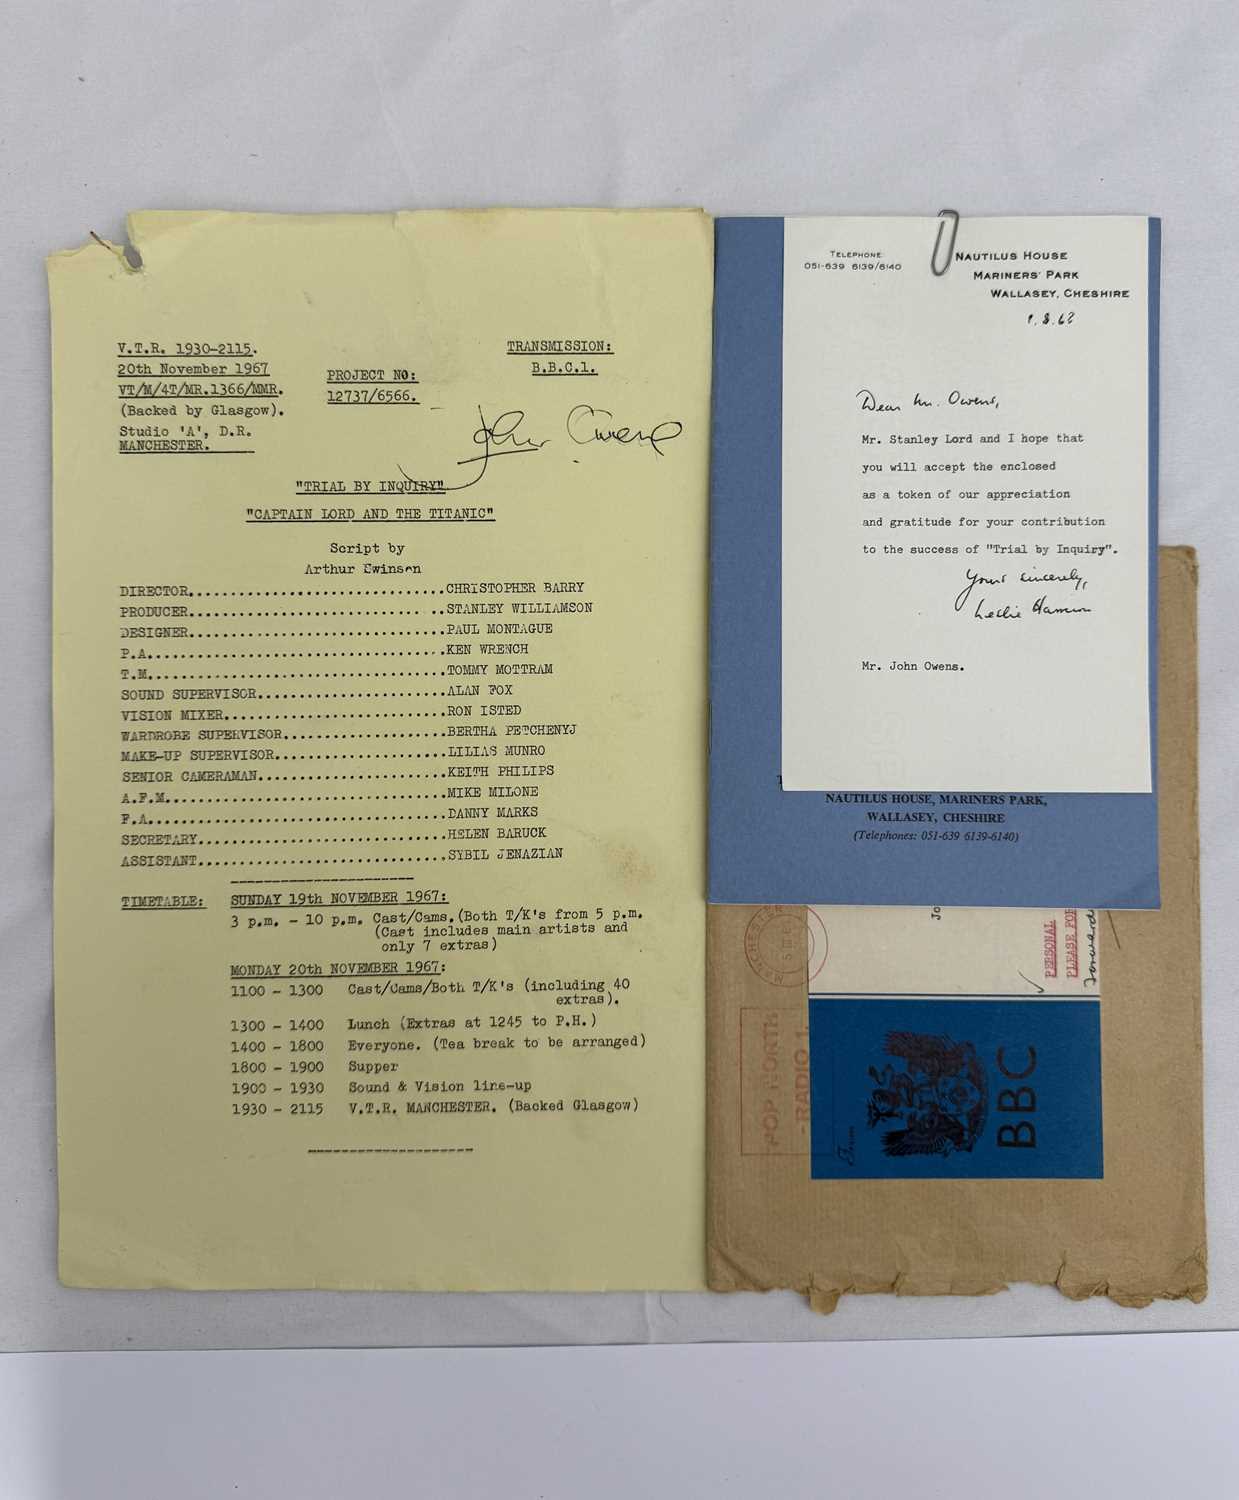 V.T.R. 1930-2115.
20th November 1967
VT/M/4T/MR.1366/MMR.
(Backed by Glasgow).
Studio 'A', D.R.
MANCHESTER.
PROJECT NO:
12737/6566.
TRANSMISSION:
B.B.C.1.
John Owens
"TRIAL BY INQUIRY"
"CAPTAIN LORD AND THE TITANIC"
Script by
Arthur Swinson
DIRECTOR...............................CHRISTOPHER BARRY
PRODUCER...............................STANLEY WILLIAMSON
DESIGNER...............................PAUL MONTAGUE
P.A....................................KEN WRENCH
T.M....................................TOMMY MOTTRAM
SOUND SUPERVISOR.......................ALAN FOX
VISION MIXER...........................RON ISTED
WARDROBE SUPERVISOR....................BERTHA PETCHENYJ
MAKE-UP SUPERVISOR.....................LILIAS MUNRO
SENIOR CAMERAMAN.......................KEITH PHILIPS
A.F.M..................................MIKE MILONE
F.A....................................DANNY MARKS
SECRETARY..............................HELEN BARUCK
ASSISTANT..............................SYBIL JENAZIAN
TIMETABLE: SUNDAY 19th NOVEMBER 1967:
3 p.m. - 10 p.m. Cast/Cams.(Both T/K's from 5 p.m.
(Cast includes main artists and
only 7 extras)
MONDAY 20th NOVEMBER 1967:
1100 - 1300 Cast/Cams/Both T/K's (including 40
extras).
1300 - 1400 Lunch (Extras at 1245 to P.H.)
1400 - 1800 Everyone. (Tea break to be arranged)
1800 - 1900 Supper
1900 - 1930 Sound & Vision line-up
1930 - 2115 V.T.R. MANCHESTER. (Backed Glasgow)
TELEPHONE:
051-639 6139/6140
NAUTILUS HOUSE
MARINERS' PARK
WALLASEY, CHESHIRE
Dear Mr. Owens,
Mr. Stanley Lord and I hope that
you will accept the enclosed
as a token of our appreciation
and gratitude for your contribution
to the success of "Trial by Inquiry".
Yours sincerely,
Leslie Harrison
Mr. John Owens.
NAUTILUS HOUSE, MARINERS PARK,
WALLASEY, CHESHIRE
(Telephones: 051-639 6139-6140)
Jo
PERSONAL
PLEASE FOR
MANCHESTER
POP NORTH
-RADIO 1-
From
BBC